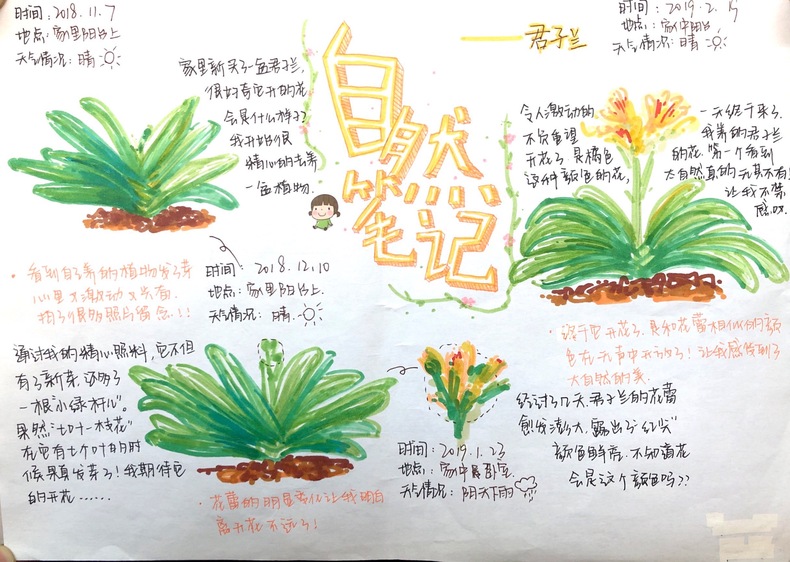 自然笔记
——君子兰
时间: 2018.11.7
地点: 家里阳台上
天气情况: 晴
家里新买了一盆君子兰,
很好奇它开的花
会是什么样子?
我开始很
精心的去养
一盆植物.
·看到自己养的植物发了芽
心里才激动又兴奋.
拍了很多照片留念!!
时间: 2018.12.10
地点: 家里阳台上.
天气情况: 晴.
通过我的精心照料,它不但
有了新芽.还多了
一根“小绿杆儿”。
果然“七叶一枝花”
在它有七个叶的时
候果真发芽了!我期待它
的开花……
·花蕾的明显变化让我明白
离开花不远了!
时间: 2019.1.23
地点: 家中卧室.
天气情况: 阴天下雨
经过了几天.君子兰的花蕾
愈发膨大.露出了“红尖”
颜色鲜亮.不知道花
会是这个颜色吗??
时间: 2019.2.15
地点: 家中阳台
天气情况: 晴
令人激动的
不负重望
开花了.是橘色
这种颜色的花,
一天终于来了.
我养的君子兰
的花.第一个看到
大自然真的无奇不有!
让我不禁
感叹.
·终于它开花了.是和花蕾相似的颜
色在无声中开放了!让我感受到了
大自然的美.